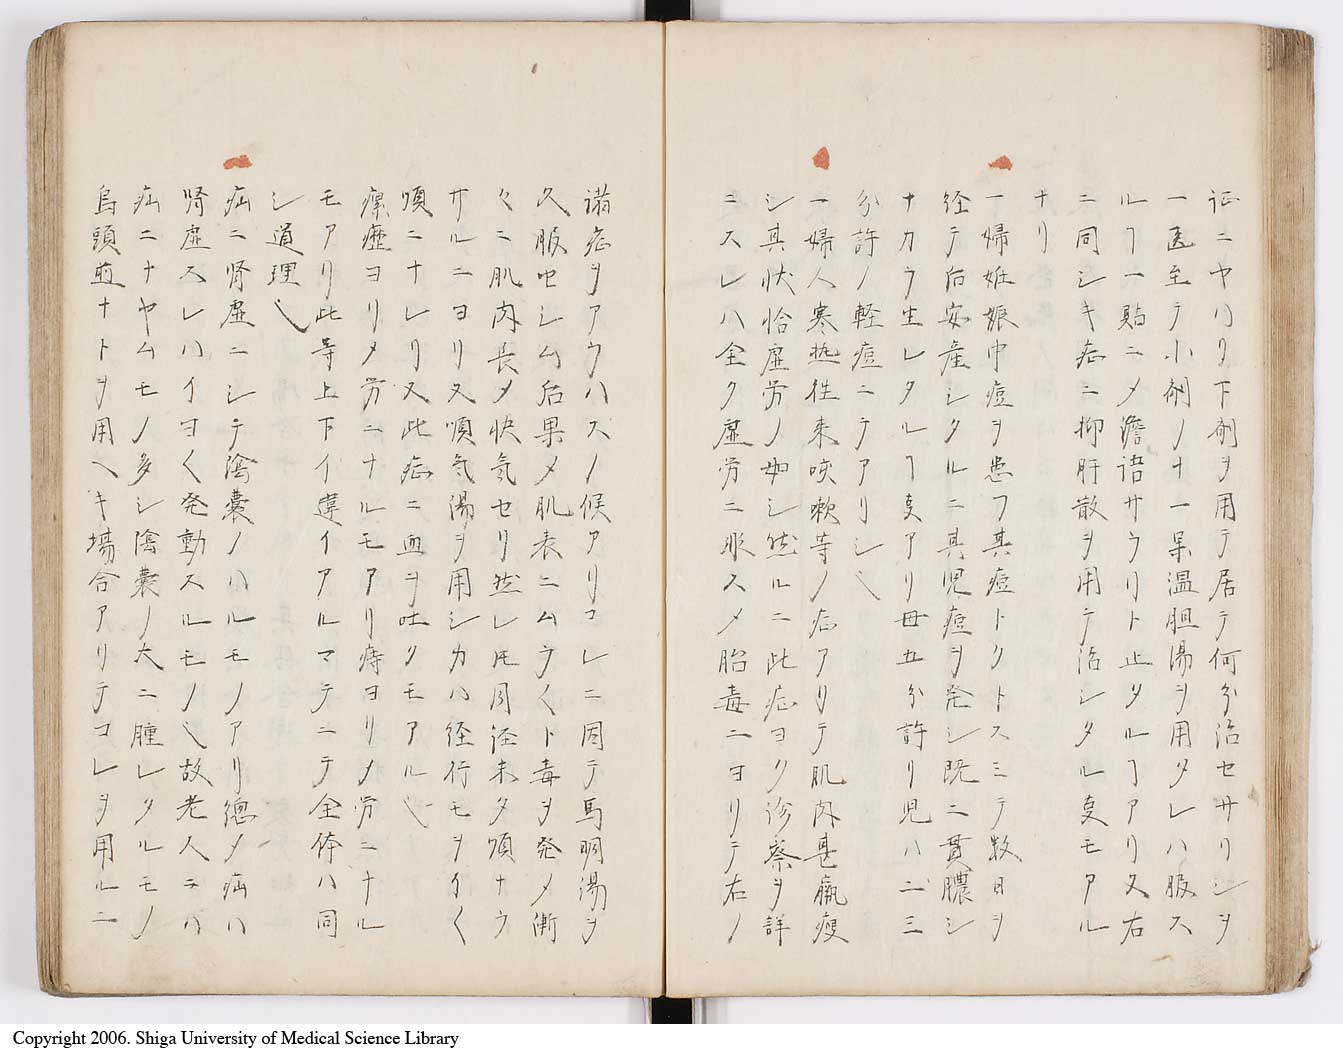 証ニヤハリ下剤ヲ用テ居テ何分治セサリシヲ
一医至テ小剤ノ十一味温胆湯ヲ用タレハ服ス
ルヿ一貼ニメ譫語サラリト止タルヿアリ又右
ニ同シキ症ニ抑肝散ヲ用テ治シタル叓モアル
ナリ
一婦妊娠中痘ヲ患フ其痘トクトスミテ数日ヲ
経テ后安産シタルニ其児痘ヲ発シ既ニ貫膿シ
ナカラ生レタルヿ叓アリ母五分許リ児ハ二三
分許ノ軽痘ニテアリシ也
一婦人寒热往来咳嗽等ノ症アリテ肌肉甚羸痩
シ其状恰虚労ノ如シ然ルニ此症ヨク診察ヲ詳
ニスレハ全ク虚労ニ非スメ胎毒ニヨリテ右ノ
諸症ヲアラハスノ候アリコレニ因テ馬明湯ヲ
久服セシム后果メ肌表ニムラ〱ト毒ヲ発メ漸
々ニ肌肉長メ快気セリ然レ𪜈月経未タ順ナラ
サルニヨリ又順気湯ヲ用シカハ経行モヲイ〱
順ニナレリ又此症ニ血ヲ吐クモアル也
瘰癧ヨリメ労ニナルモアリ痔ヨリメ労ニナル
モアリ此等上下イ違イアルマテニテ全体ハ同
シ道理也
疝ニ腎虚ニシテ陰嚢ノハルモノアリ總メ疝ハ
腎虚スレハイヨ〱発動スルモノ也故老人ニハ
疝ニナヤムモノ多シ陰嚢ノ大ニ腫レタルモノ
烏頭煎ナトヲ用ヘキ場合アリテコレヲ用ルニ
Copyright 2006. Shiga University of Medical Science Library